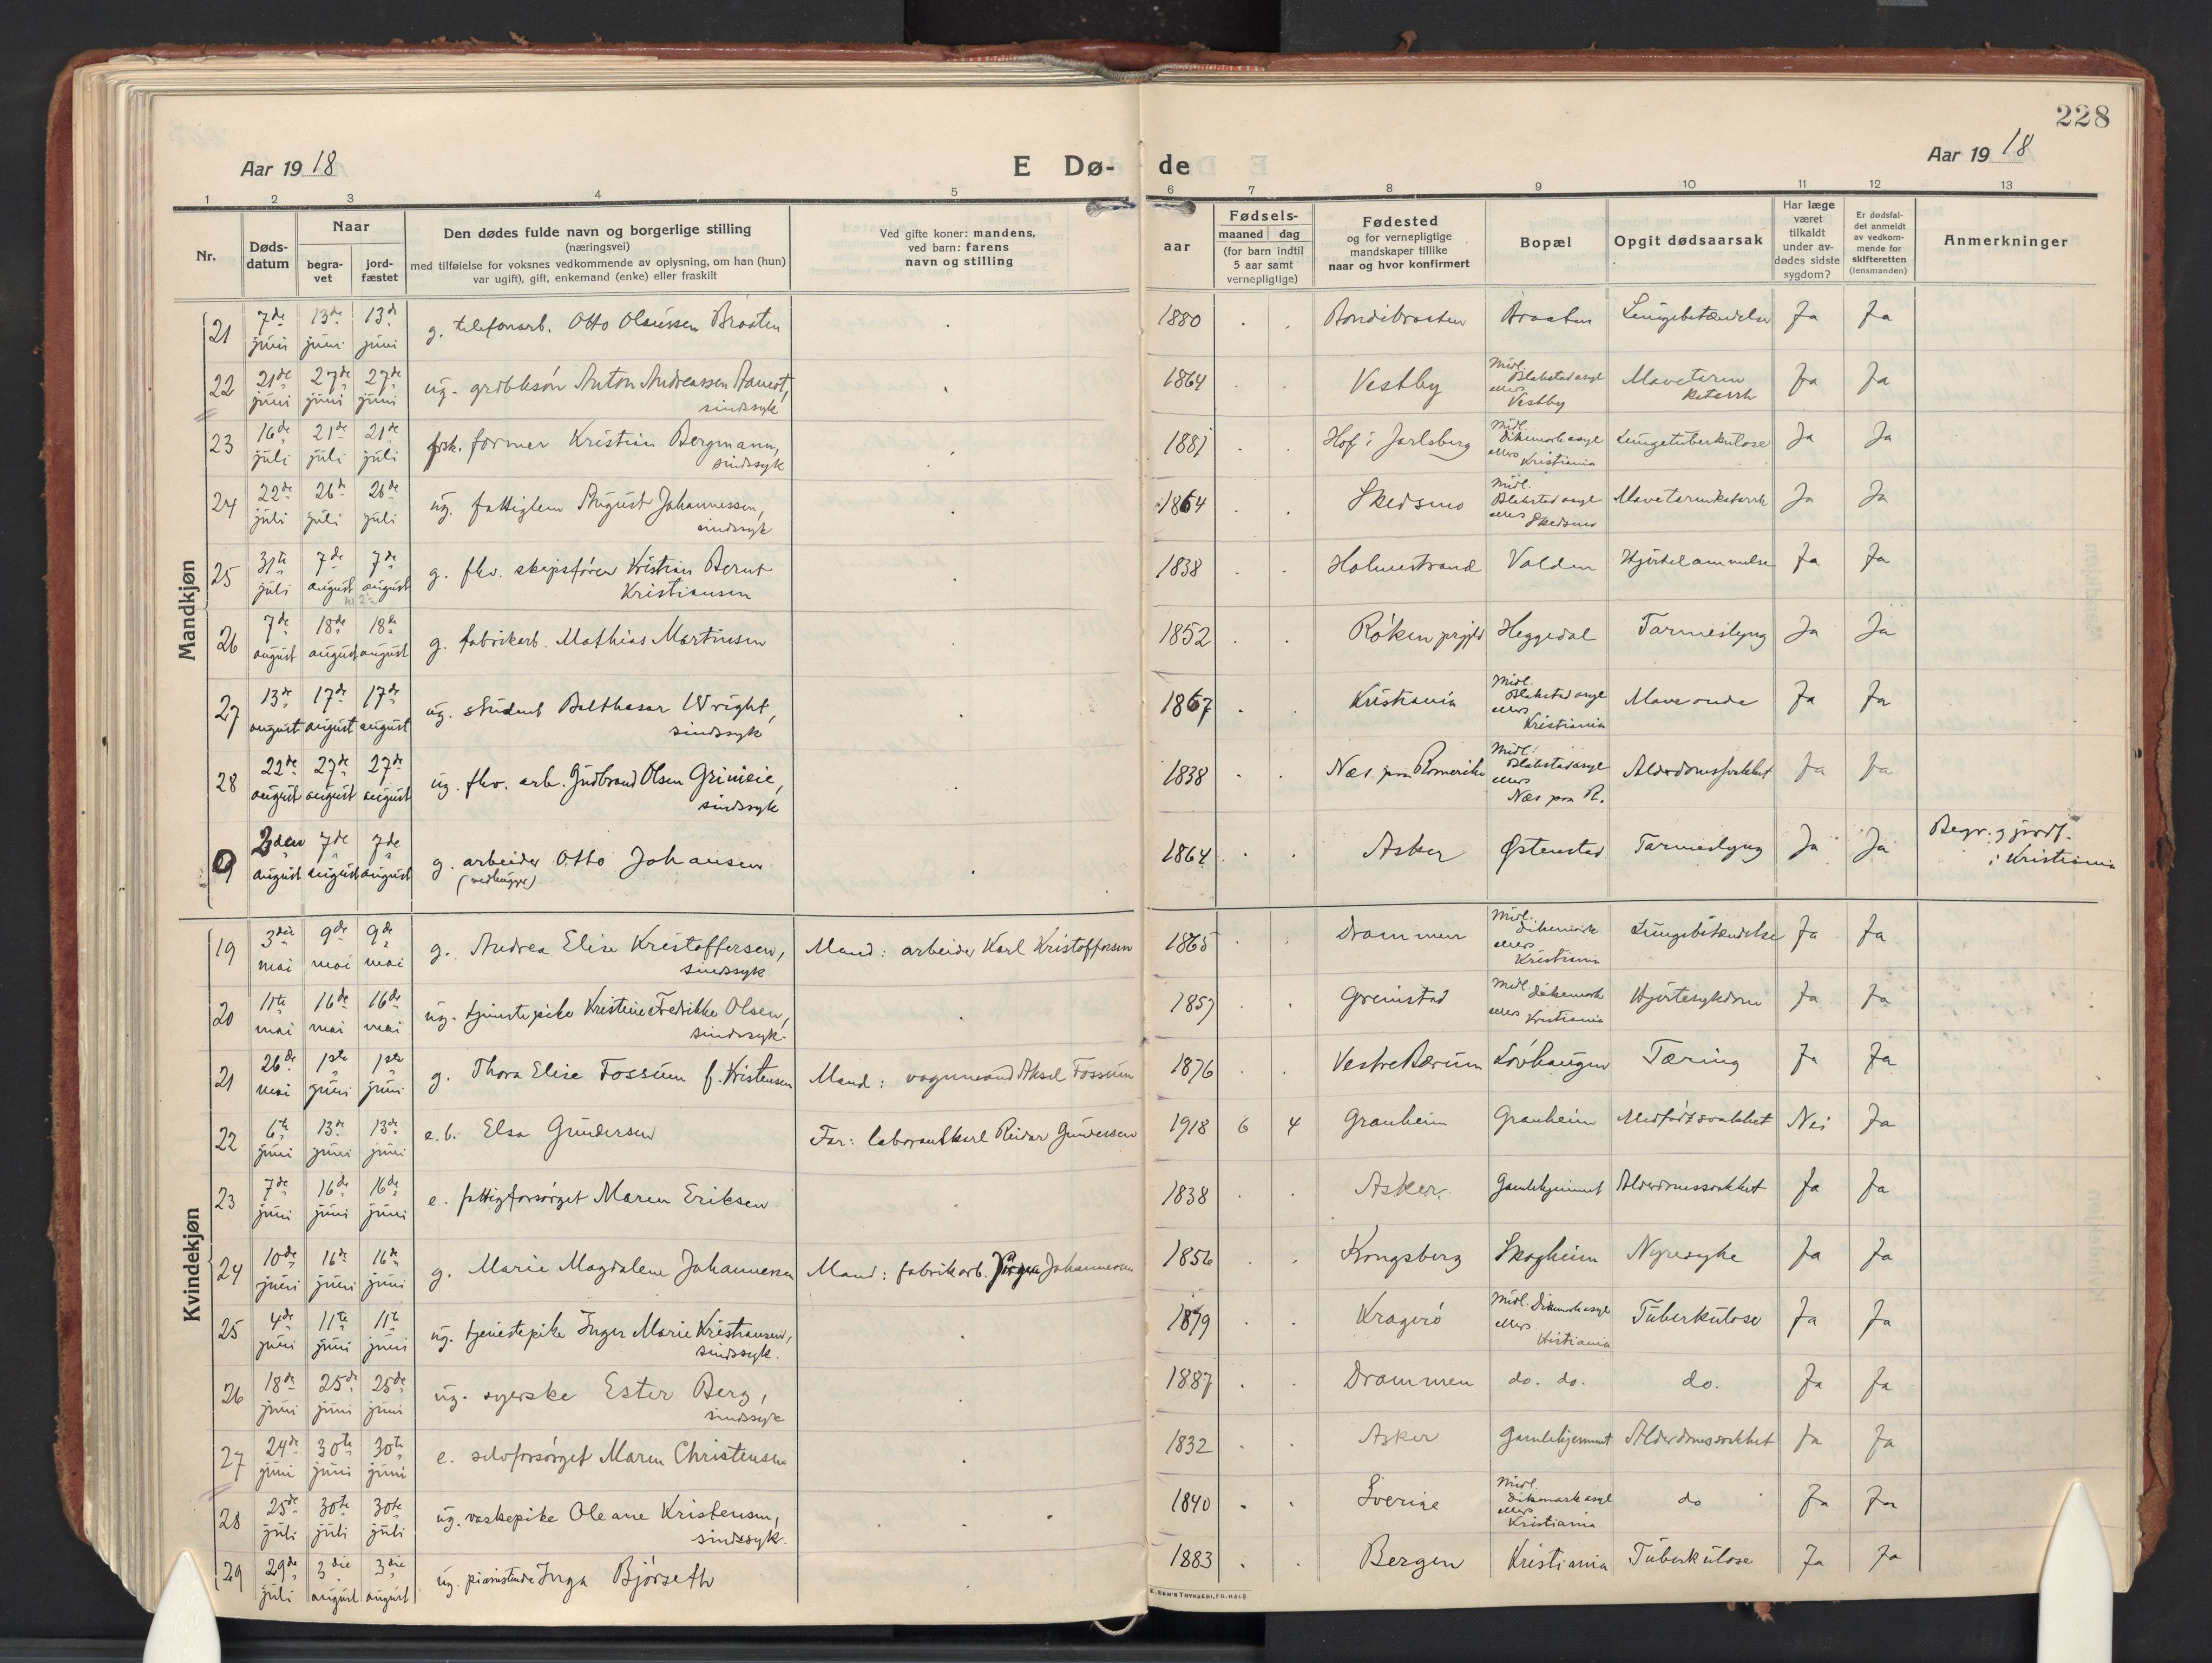 228
Aar 1918
E Dø-
de
Aar 1918
1 2 3 4 5 6 7 8 9 10 11 12 13
Nr.
Døds-
datum
Naar
begra-
vet
jord-
fæstet
Den dødes fulde navn og borgerlige stilling
(næringsvei)
med tilføielse for voksnes vedkommende av oplysning, om han (hun)
var ugift), gift, enkemand (enke) eller fraskilt
Ved gifte koner: mandens,
ved barn: farens
navn og stilling
aar
Fødsels-
maaned dag
(for barn indtil
5 aar samt
vernepligtige)
Fødested
og for vernepligtige
mandskaper tillike
naar og hvor konfirmert
Bopæl
Opgit dødsaarsak
Har læge
været
tilkaldt
under av-
dødes sidste
sygdom?
Er dødsfal-
det anmeldt
av vedkom-
mende for
skifteretten
(lensmanden)
Anmerkninger
Mandkjøn
21 7de juni 13de juni 13de juni g. telefonarb. Otto Olaussen Braaten 1880 Bondibraaten Braaten Lungebetændelse Ja Ja
22 21de juni 27de juni 27de juni ug. grdbksøn Anton Andreassen
sindssyk 1864 Vestby Midl. Blakstad asyl ellers Vestby Mavetarm katarrh Ja Ja
23 16de juli 21de juli 21de juli frsk. former Kristian Bergmann,
sindssyk 1881 Hof i Jarlsberg Midl. Dikemark asyl ellers Kristiania Lungetuberkulose Ja Ja
24 22de juli 26de juli 26de juli ug. fattiglem August Johannessen,
sindssyk 1864 Skedsmo Midl. Blakstad asyl ellers Skedsmo Mavetarmkatarrh Ja Ja
25 31te juli 7de august 7de august g. fhv. skipsfører Kristian Bernt
Kristiansen 1838 Holmestrand Valden Hjertelammelse Ja Ja
26 7de august 18de august 18de august g. fabrikarb. Mathias Martinsen 1852 Røken prgjld Heggedal Tarmeslyng Ja Ja
27 13de august 17de august 17de august ug. student Balthasar Wright,
sindssyk 1867 Kristiania Midl. Blakstad asyl ellers Kristiania Mave onde Ja Ja
28 22de august 27de august 27de august ug. fhv. arb. Gudbrand Olsen Grinieie,
sindssyk 1838 Næs paa Romerike Midl. Blakstad asyl ellers Næs paa R. Alderdomssvakhet Ja Ja
9 2den august 7de august 7de august g. arbeider Otto Johansen
(vedhugge) 1864 Asker Østenstad Tarmeslyng Ja Ja Begr. og jordf.
i Kristiania
Kvindekjøn
19 3die mai 9de mai 9de mai g. Andrea Elise Kristoffersen,
sindssyk Mand: arbeider Karl Kristoffersen 1865 Drammen Midl. Dikemark ellers Kristiania Lungebetændelse Ja Ja
20 11te mai 16de mai 16de mai ug. tjenestepike Kristine Fredrikke Olsen,
sindssyk. 1857 Grimstad Midl. Dikemark ellers Kristiania Hjertesykdom Ja Ja
21 26de mai 1ste juni 1ste juni g. Thora Elise Fossum f. Kristensen Mand: vognmand Aksel Fossum 1876 Vestre Bærum Løvhaugen Tæring Ja Ja
22 6te juni 13de juni 13de juni e.b. Elsa Gundersen Far: laborantkarl Reidar Gundersen 1918 6 4 Granheim Granheim Medfødt svakhet Nei Ja
23 7de juni 16de juni 16de juni e. fattigforsørget Maren Eriksen 1838 Asker Gamlehjemmet Alderdomssvakhet Ja Ja
24 10de juni 16de juni 16de juni g. Marie Magdalene Johannesen Mand: fabrikarb. Jørgen Johannesen 1856 Kongsberg Skogheim Nyresyke Ja Ja
25 4de juni 11te juni 11te juni ug. tjenestepike Inger Marie Kristiansen,
sindssyk. 1879 Kragerø Midl. Dikemark asyl ellers Kristiania Tuberkulose Ja Ja
26 18de juni 25de juni 25de juni ug. syerske Ester Berg,
sindssyk 1887 Drammen do. do. do. Ja Ja
27 24de juni 30te juni 30te juni e. selvforsørget Maren Christensen 1832 Asker Gamlehjemmet Alderdomssvakhet Ja Ja
28 25de juli 30te juli 30te juli ug. vaskepike Oleane Kristensen,
sindssyk. 1840 Sverige Midl. Dikemark asyl ellers Kristiania do Ja Ja
29 29de juli 3die august 3die august ug. pianistinde Inga Bjørseth 1883 Bergen Kristiania Tuberkulose Ja Ja